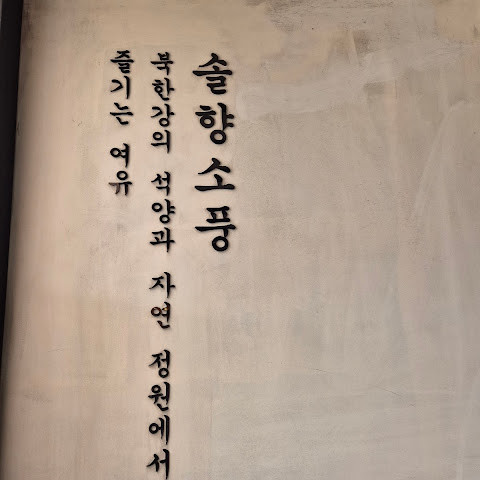 솔향소풍
북한강의 석양과 자연 정원에서
즐기는 여유